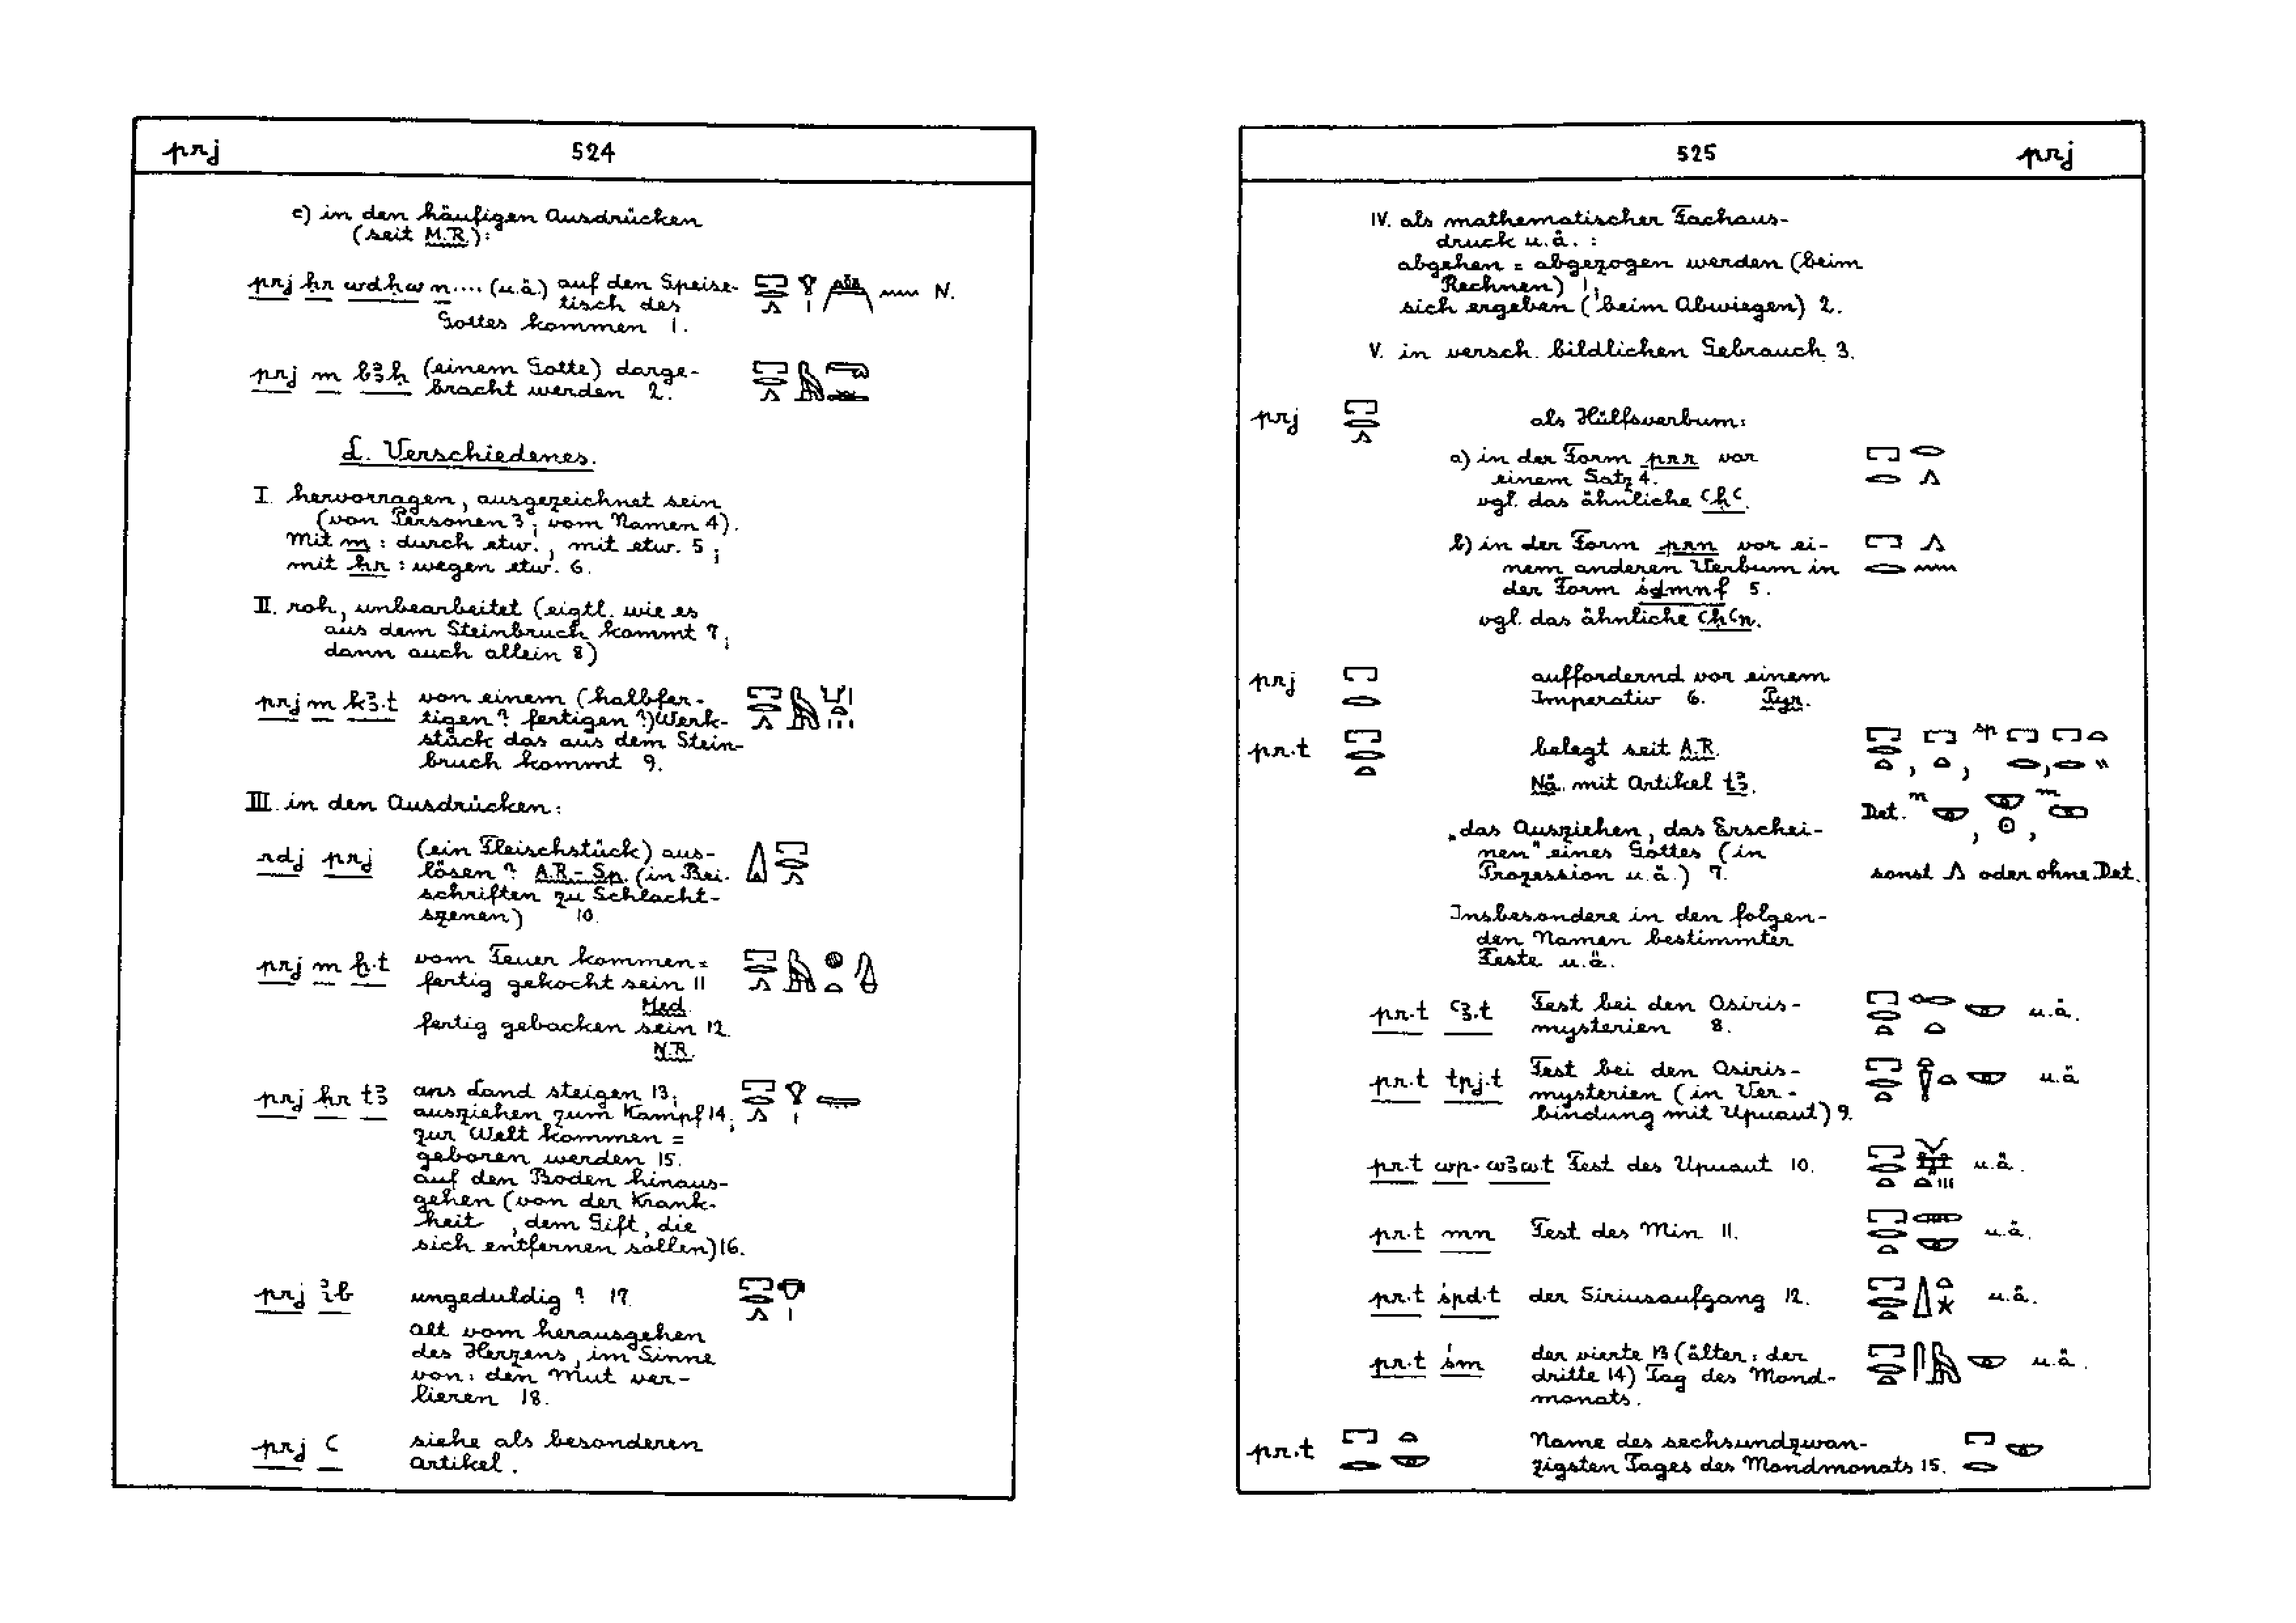 prj 524
c) in den häufigen Ausdrücken
(seit M.R.):
prj ḥr wdḥw n.... (u.ä.) auf den Speise-
tisch des
Gottes kommen 1. N.
prj m bꜣḥ (einem Gotte) darge-
bracht werden 2.
L. Verschiedenes.
I. hervorragen, ausgezeichnet sein
(von Personen 3; vom Namen 4).
Mit m : durch etw., mit etw. 5;
mit ḥr : wegen etw. 6.
II. roh, unbearbeitet (eigtl. wie es
aus dem Steinbruch kommt 7;
dann auch allein 8)
prj m kꜣ.t von einem (halbfer-
tigen? fertigen?) Werk-
stück das aus dem Stein-
bruch kommt 9.
III. in den Ausdrücken:
rdj prj (ein Fleischstück) aus-
lösen? A.R.-Sp. (in Bei-
schriften zu Schlacht-
szenen) 10.
prj m ḫ.t vom Feuer kommen =
fertig gekocht sein 11
Med.
fertig gebacken sein 12.
N.R.
prj ḥr tꜣ ans Land steigen 13;
ausziehen zum Kampf 14;
zur Welt kommen =
geboren werden 15.
auf den Boden hinaus-
gehen (von der Krank-
heit, dem Gift, die
sich entfernen sollen) 16.
prj ꞽb ungeduldig? 17.
alt vom herausgehen
des Herzens, im Sinne
von: den Mut ver-
lieren 18.
prj ꜥ siehe als besonderen
Artikel.
525 prj
IV. als mathematischer Fachaus-
druck u.ä.:
abgehen = abgezogen werden (beim
Rechnen) 1;
sich ergeben (beim Abwiegen) 2.
V. in versch. bildlichen Gebrauch 3.
prj 𓉐𓂋𓂻 als Hülfsverbum:
a) in der Form prr vor
einem Satz 4.
vgl. das ähnliche ꜥḥꜥ.
b) in der Form prn vor ei-
nem anderen Verbum in
der Form śḏmnf 5.
vgl. das ähnliche ꜥḥꜥn.
prj 𓉐𓂋 auffordernd vor einem
Imperativ 6. Pyr.
pr.t 𓉐𓂋𓏏 belegt seit A.R.
Nä. mit Artikel tꜣ.
Det.
„das Ausziehen, das Erschei-
nen" eines Gottes (in
Prozession u.ä.) 7. sonst 𓂻 oder ohne Det.
Insbesondere in den folgen-
den Namen bestimmter
Feste u.ä.
pr.t ꜥꜣ.t Fest bei den Osiris-
mysterien 8. u.ä.
pr.t tpj.t Fest bei den Osiris-
mysterien (in Ver-
bindung mit Upuaut) 9. u.ä
pr.t wp-wꜣw.t Fest des Upuaut 10. u.ä.
pr.t mn Fest des Min 11. u.ä.
pr.t śpd.t der Siriusaufgang 12. u.ä.
pr.t śm der vierte 13 (älter: der
dritte 14) Tag des Mond-
monats. u.ä.
pr.t Name des sechsundzwan-
zigsten Tages des Mondmonats 15.